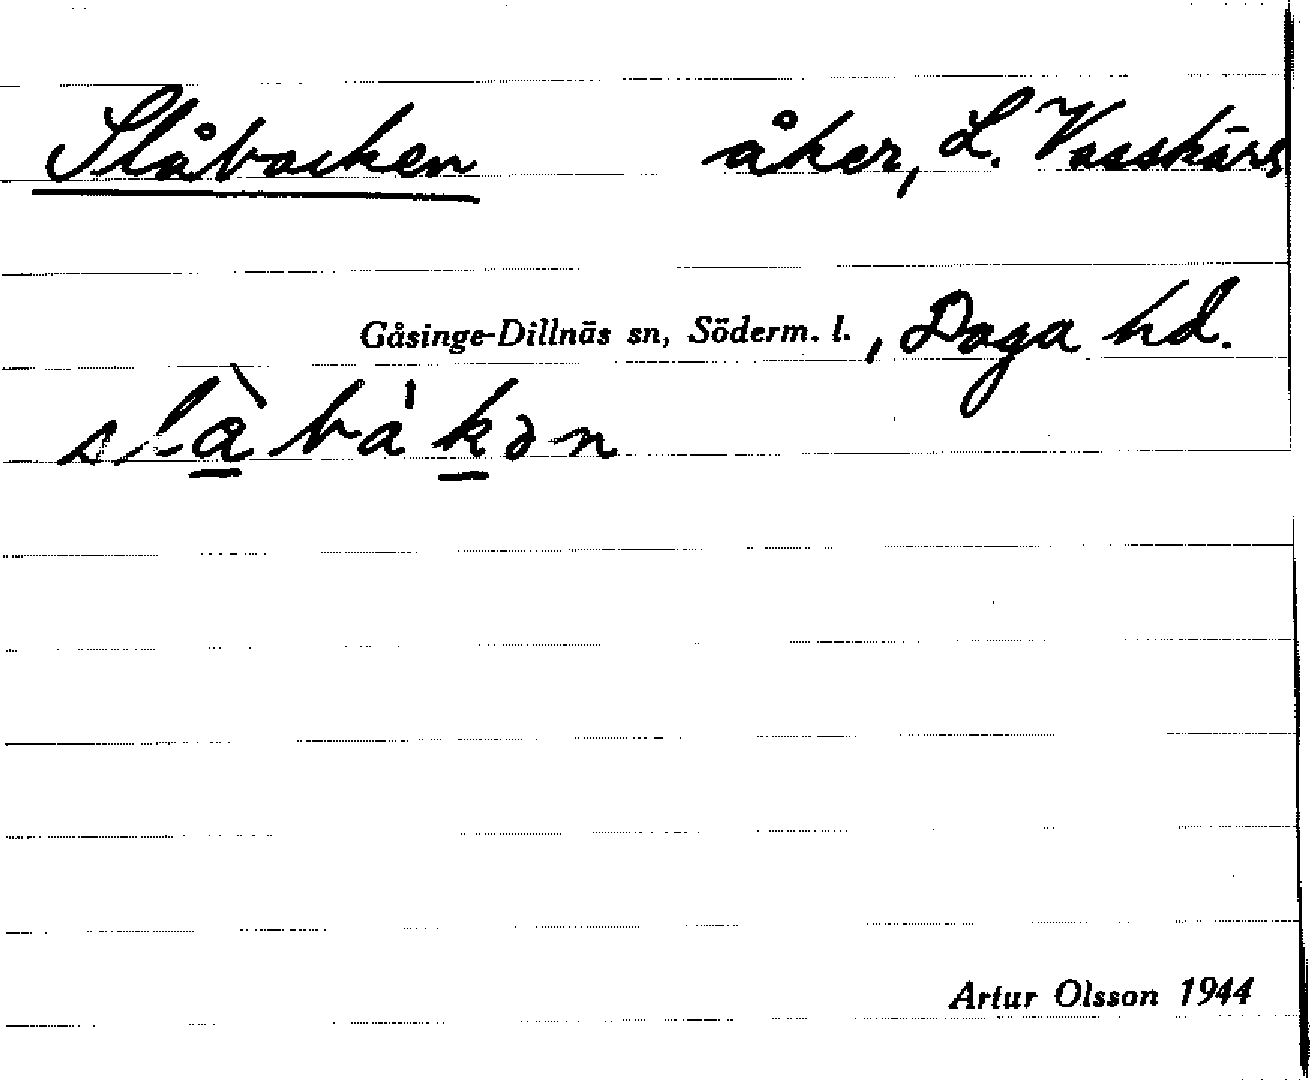 Slåbacken åker, L. Vasskärs
Gåsinge-Dillnäs sn, Söderm. l., Daga hd.
slàbákən
Artur Olsson 1944